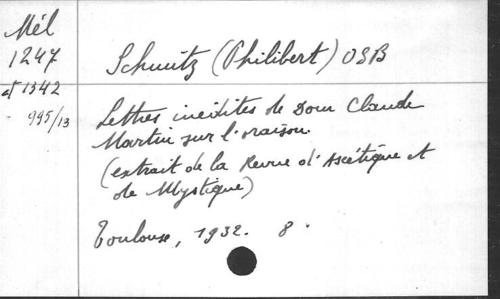 Mél
1247
et 1342
995/13
Schmitz (Philibert) OSB
Lettres inédites de Dom Claude
Martin sur l'oraison.
(extrait de la Revue d'Ascétique et
de Mystique)
Toulouse, 1932. 8°.